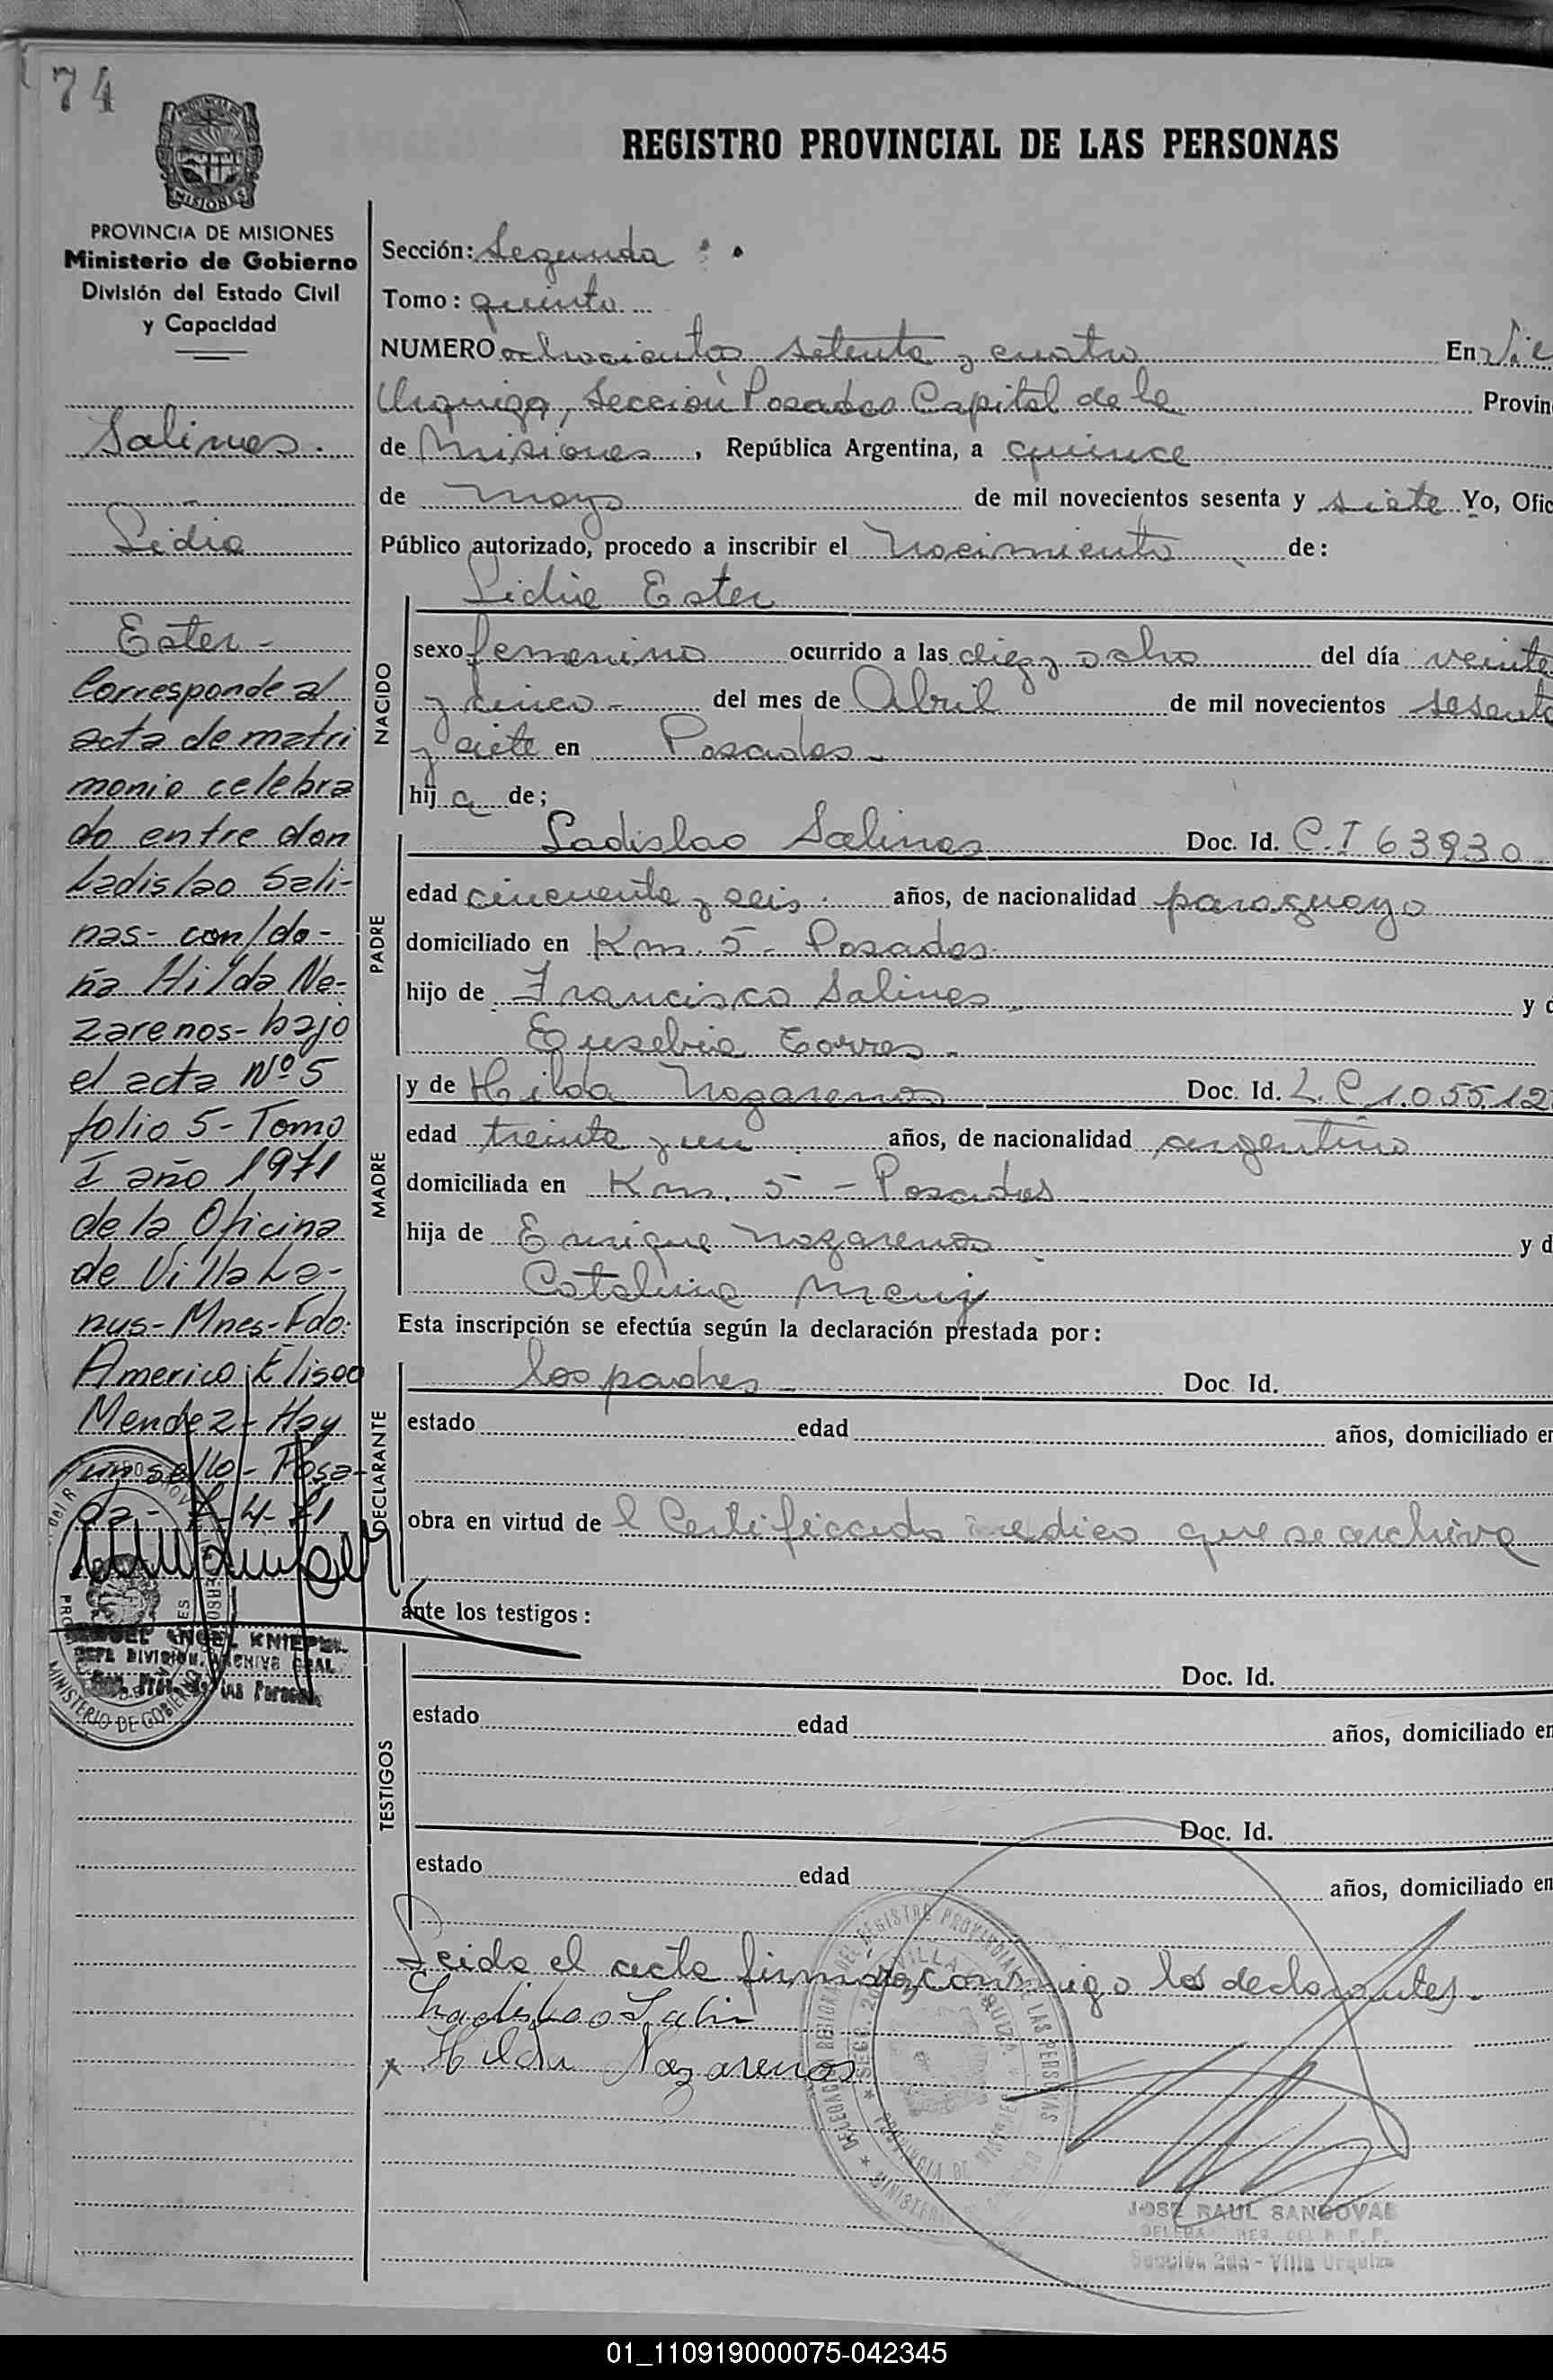 74
PROVINCIA DE MISIONES
Ministerio de Gobierno
División del Estado Civil
y Capacidad
Salinas.
Lidia
Ester -
Corresponde al
acta de matri
monio celebra
do entre don
Ladislao Sali-
nas- con/do-
ña Hilda Na-
zarenos- bajo
el acta Nº 5
folio 5- Tomo
I año 1971
de la Oficina
de Villa La-
nus- Mnes- Fdo:
Americo Eliseo
Mendez- Hay
un sello- Posa-
da - 7-4-71
ANGEL KNIEPH
JEFE DIVISION ARCHIVO GRAL
MINISTERIO DE GOBIERNO
REGISTRO PROVINCIAL DE LAS PERSONAS
Sección: Segunda
Tomo: quinto
NUMERO ochocientos setenta y cuatro En
Urquiza, Sección Posadas Capital de la Provin
de Misiones, República Argentina, a quince
de mayo de mil novecientos sesenta y siete Yo, Ofic
Público autorizado, procedo a inscribir el Nacimiento de:
NACIDO
Lidia Ester
sexo femenino ocurrido a las diez y ocho del día veinte
y cinco - del mes de Abril de mil novecientos sesenta
y siete en Posadas -
hij a de;
PADRE
Ladislao Salinas Doc. Id. C.I 63930
edad cincuenta y seis años, de nacionalidad paraguayo
domiciliado en Km. 5 - Posadas.
hijo de Francisco Salinas y d
Eusebia Torres -
MADRE
y de Hilda Nazarenos Doc. Id. L.C 1.055.12
edad treinta y un años, de nacionalidad argentino
domiciliada en Km. 5 - Posadas
hija de Enrique Nazarenos y d
Catalina
Esta inscripción se efectúa según la declaración prestada por:
DECLARANTE
los padres Doc. Id.
estado edad años, domiciliado en
obra en virtud de l Certificado medico que se archiva
ante los testigos:
TESTIGOS
Doc. Id.
estado edad años, domiciliado en
Doc. Id.
estado edad años, domiciliado en
Leida el acta firman conmigo los declarantes.
Ladislao Salin
x Hilda Nazarenos
JOSE RAUL SANDOVAL
Sección 2da - Villa Urquiza
01_110919000075-042345